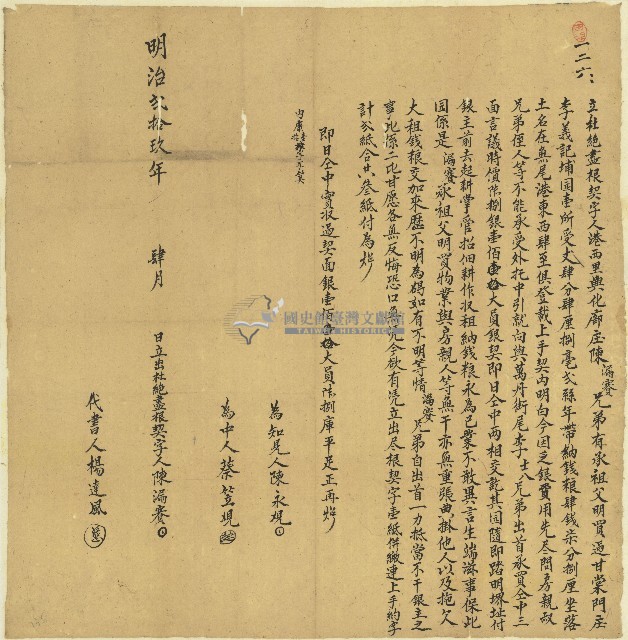 一二六
立杜絕盡根契字人港西里興化廊庄陳滿賽兄弟有承祖父明買過甘棠門庄
李義記埔園壹所受丈肆分肆厘捌毫弍絲年帶納錢粮肆錢柒分捌厘坐落
土名在無尾港東西肆至俱登載上手契內明白今因乏銀費用先尽問房親叔
兄弟侄人等不能承受外托中引就向與萬丹街尾李士兄弟出首承買仝中三
面言議時價銀壹佰壹拾大員銀契即日仝中兩相交訖其園隨即踏明界址付
銀主前去起耕掌管招佃耕作收租納錢粮永為己業不敢異言生端滋事保此
園係是滿賽承祖父明買物業與房親人等無干亦無重張典掛他人以及拖欠
大租錢粮交加來歷不明為碍如有不明等情滿賽兄弟自出首一力抵當不干銀主之
事此係二比甘愿各無反悔恐口無凭今欲有凭立出尽根契字壹紙併繳連上手約字
計弍紙合共叁紙付為炤
即日仝中實收過契面銀壹佰壹拾大員庫平足正再炤
為知見人陳永規
為中人蔡笠規
明治弍拾玖年 肆月 日立出杜絕盡根契字人陳滿賽
代書人楊達風
國史館臺灣文獻館
TAIWAN HISTORICA